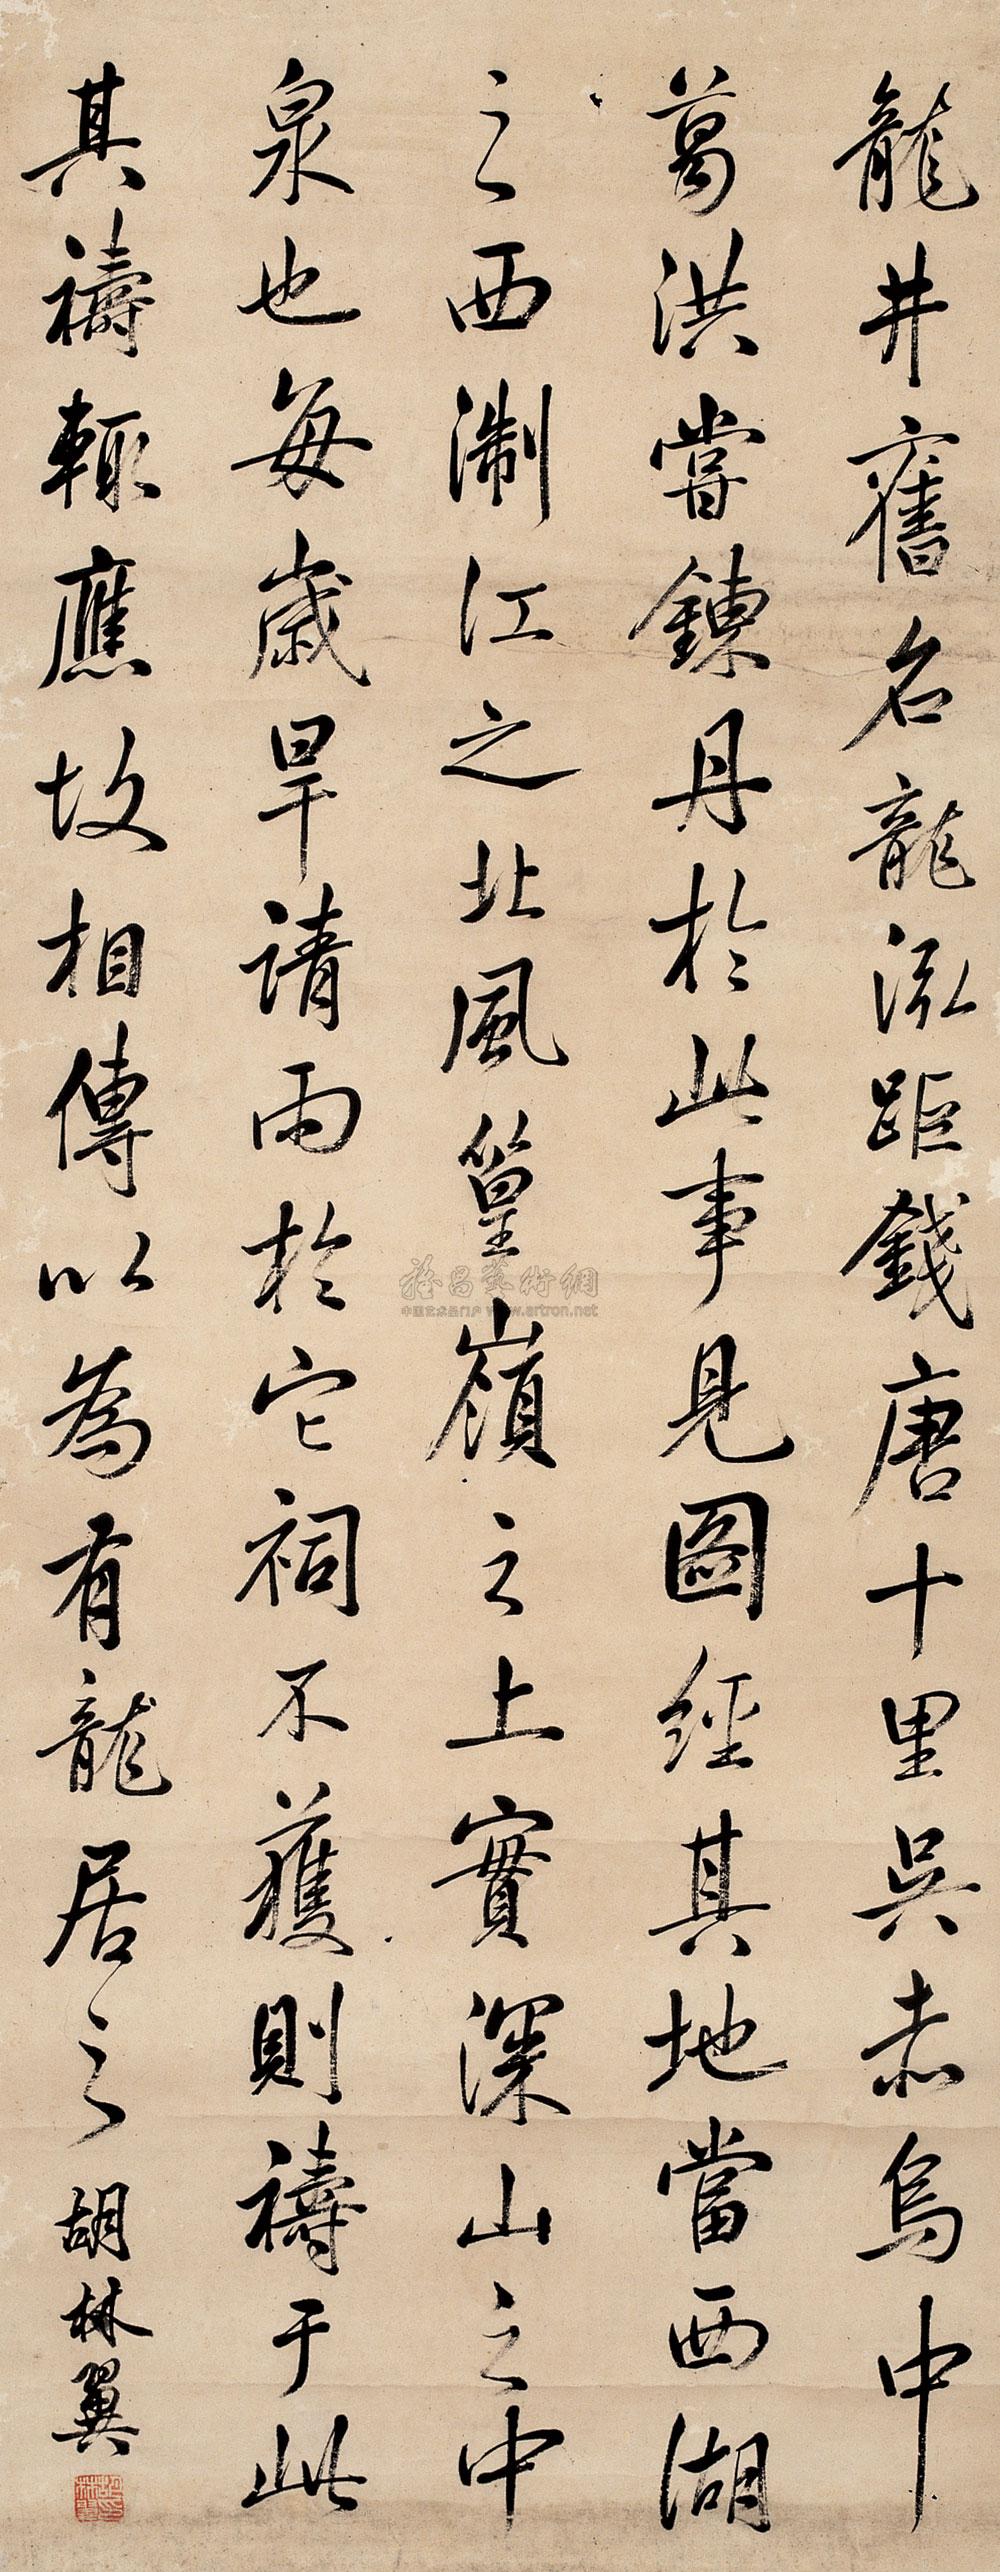 龍井舊名龍泓距錢唐十里吳赤烏中
葛洪嘗鍊丹於此事見圖經其地當西湖
之西淛江之北風篁嶺之上實深山之中
泉也每歲旱請雨於它祠不獲則禱于此
其禱輒應故相傳以為有龍居之
胡林翼
雅昌藝術網
中国艺术品门户 www.artron.net